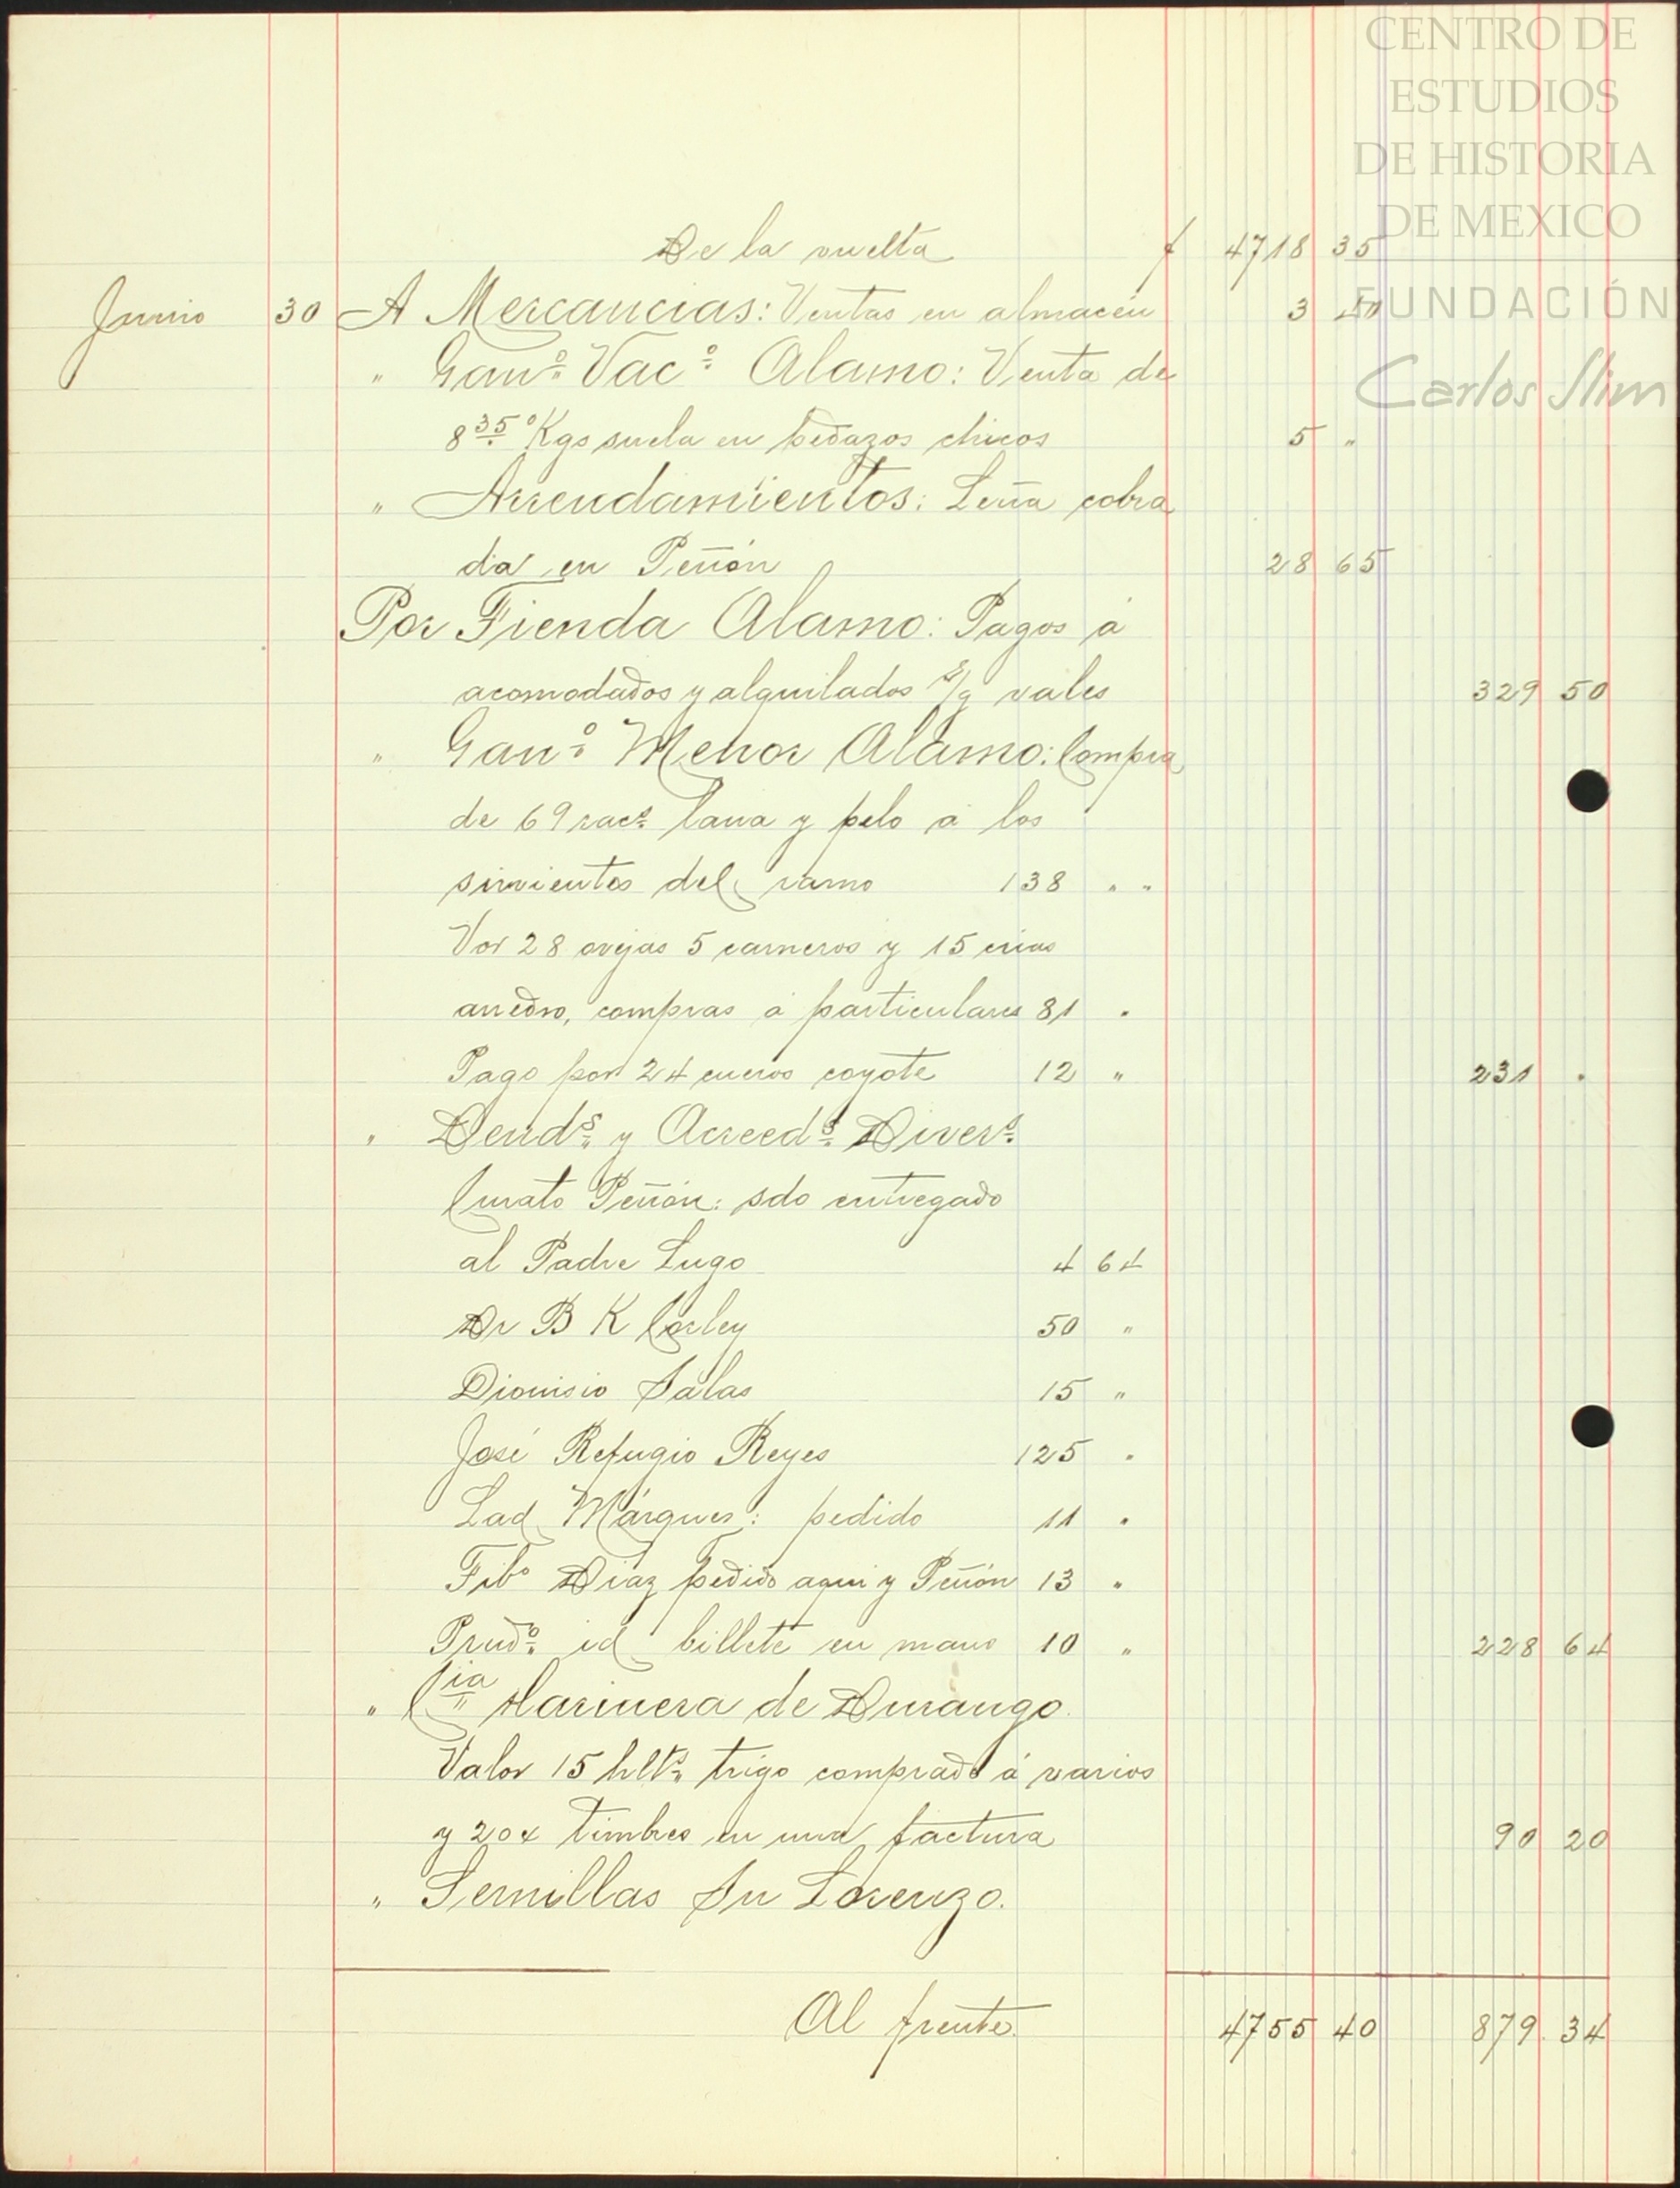 CENTRO DE
ESTUDIOS
DE HISTORIA
DE MEXICO
FUNDACIÓN
Carlos Slim
De la vuelta $ 4718 35
Junio 30 A Mercancias: Ventas en almacén 3 40
" Gano Vaco Alamo: Venta de
8 35 Kgs suela en pedazos chicos 5 "
" Arrendamientos: Leña cobra
da en Peñón 28 65
Por Tienda Alamo: Pagos á
acomodados y alquilados s/g vales 329 50
" Gano Menor Alamo: Compra
de 69 zacs lana y pelo á los
sirvientes del ramo 138 " "
Vor 28 ovejas 5 carneros y 15 crias
arredro, compras á particulares 81 "
Pago por 24 cueros coyote 12 " 231 "
" Deuds y Acreeds Divers
Curato Peñón: sdo entregado
al Padre Lugo 4 64
Dr B K Corley 50 "
Dionisio Salas 15 "
José Refugio Reyes 125 "
Lad Márquez: pedido 11 "
Tibo Diaz pedido aqui y Peñón 13 "
Prudo id billete en mano 10 " 228 64
" Cia Harinera de Durango.
Valor 15 hlts trigo comprado á varios
y 20¢ timbres en una factura 90 20
" Semillas Sn Lorenzo.
Al frente 4755 40 879 34